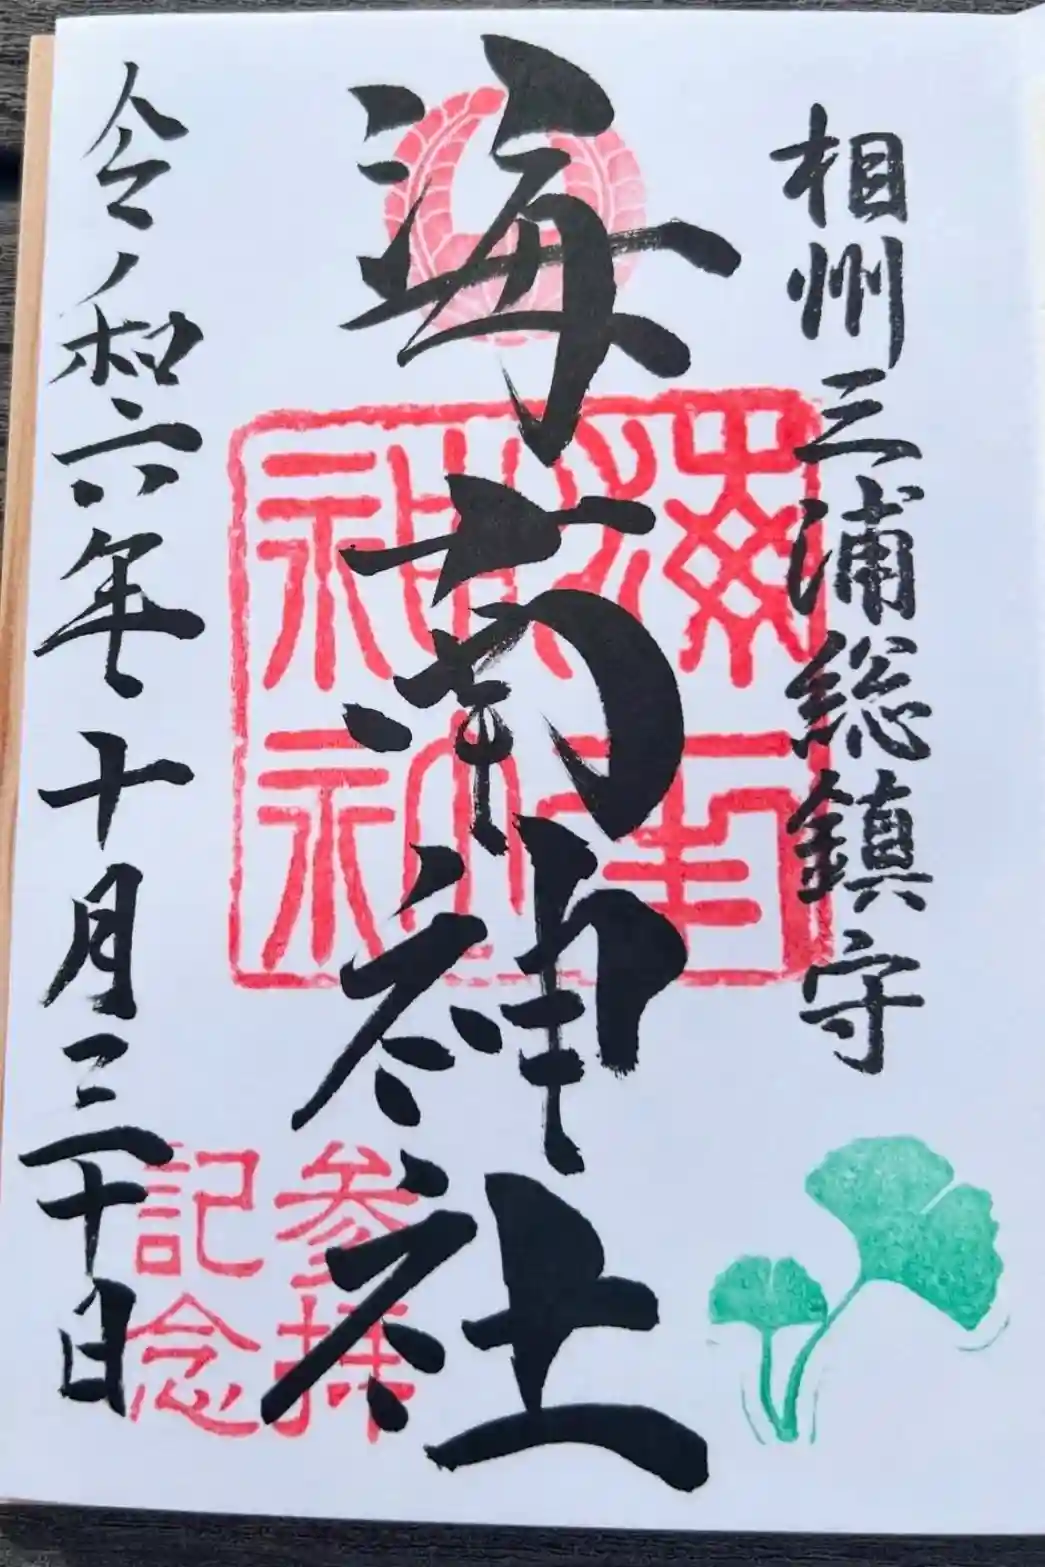 相州三浦総鎮守
海南神社
令和六年十月三十日
海南神社
参拝
記念